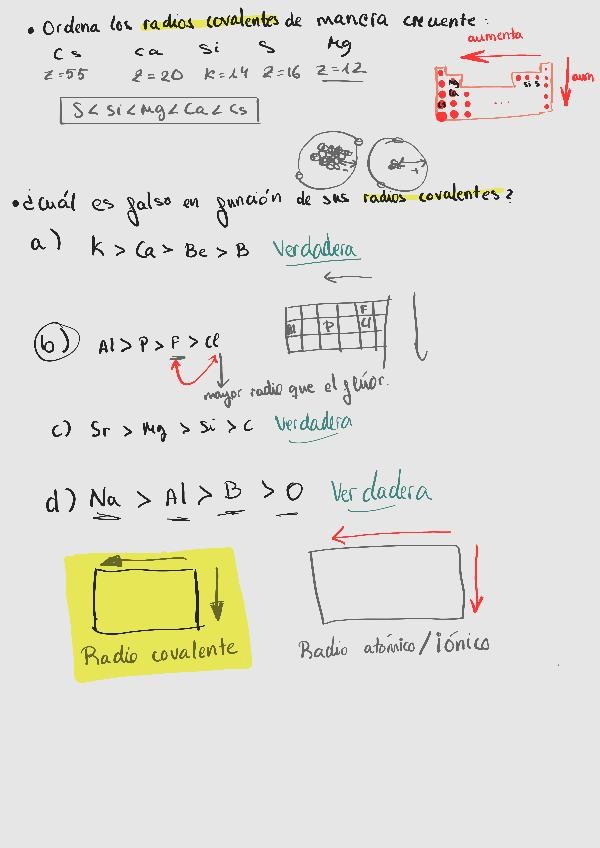 • Ordena los radios covalentes de manera creciente:
Cs Ca Si S Mg
Z=55 Z=20 K=14 Z=16 Z=12
S < Si < Mg < Ca < Cs
aumenta
aum
Mg
Ca
Cs
Si S
• ¿Cuál es falso en función de sus radios covalentes?
a) K > Ca > Be > B Verdadera
b) Al > P > F > Cl
F
Al P Cl
mayor radio que el flúor.
c) Sr > Mg > Si > C Verdadera
d) Na > Al > B > O Verdadera
Radio covalente
Radio atómico / iónico